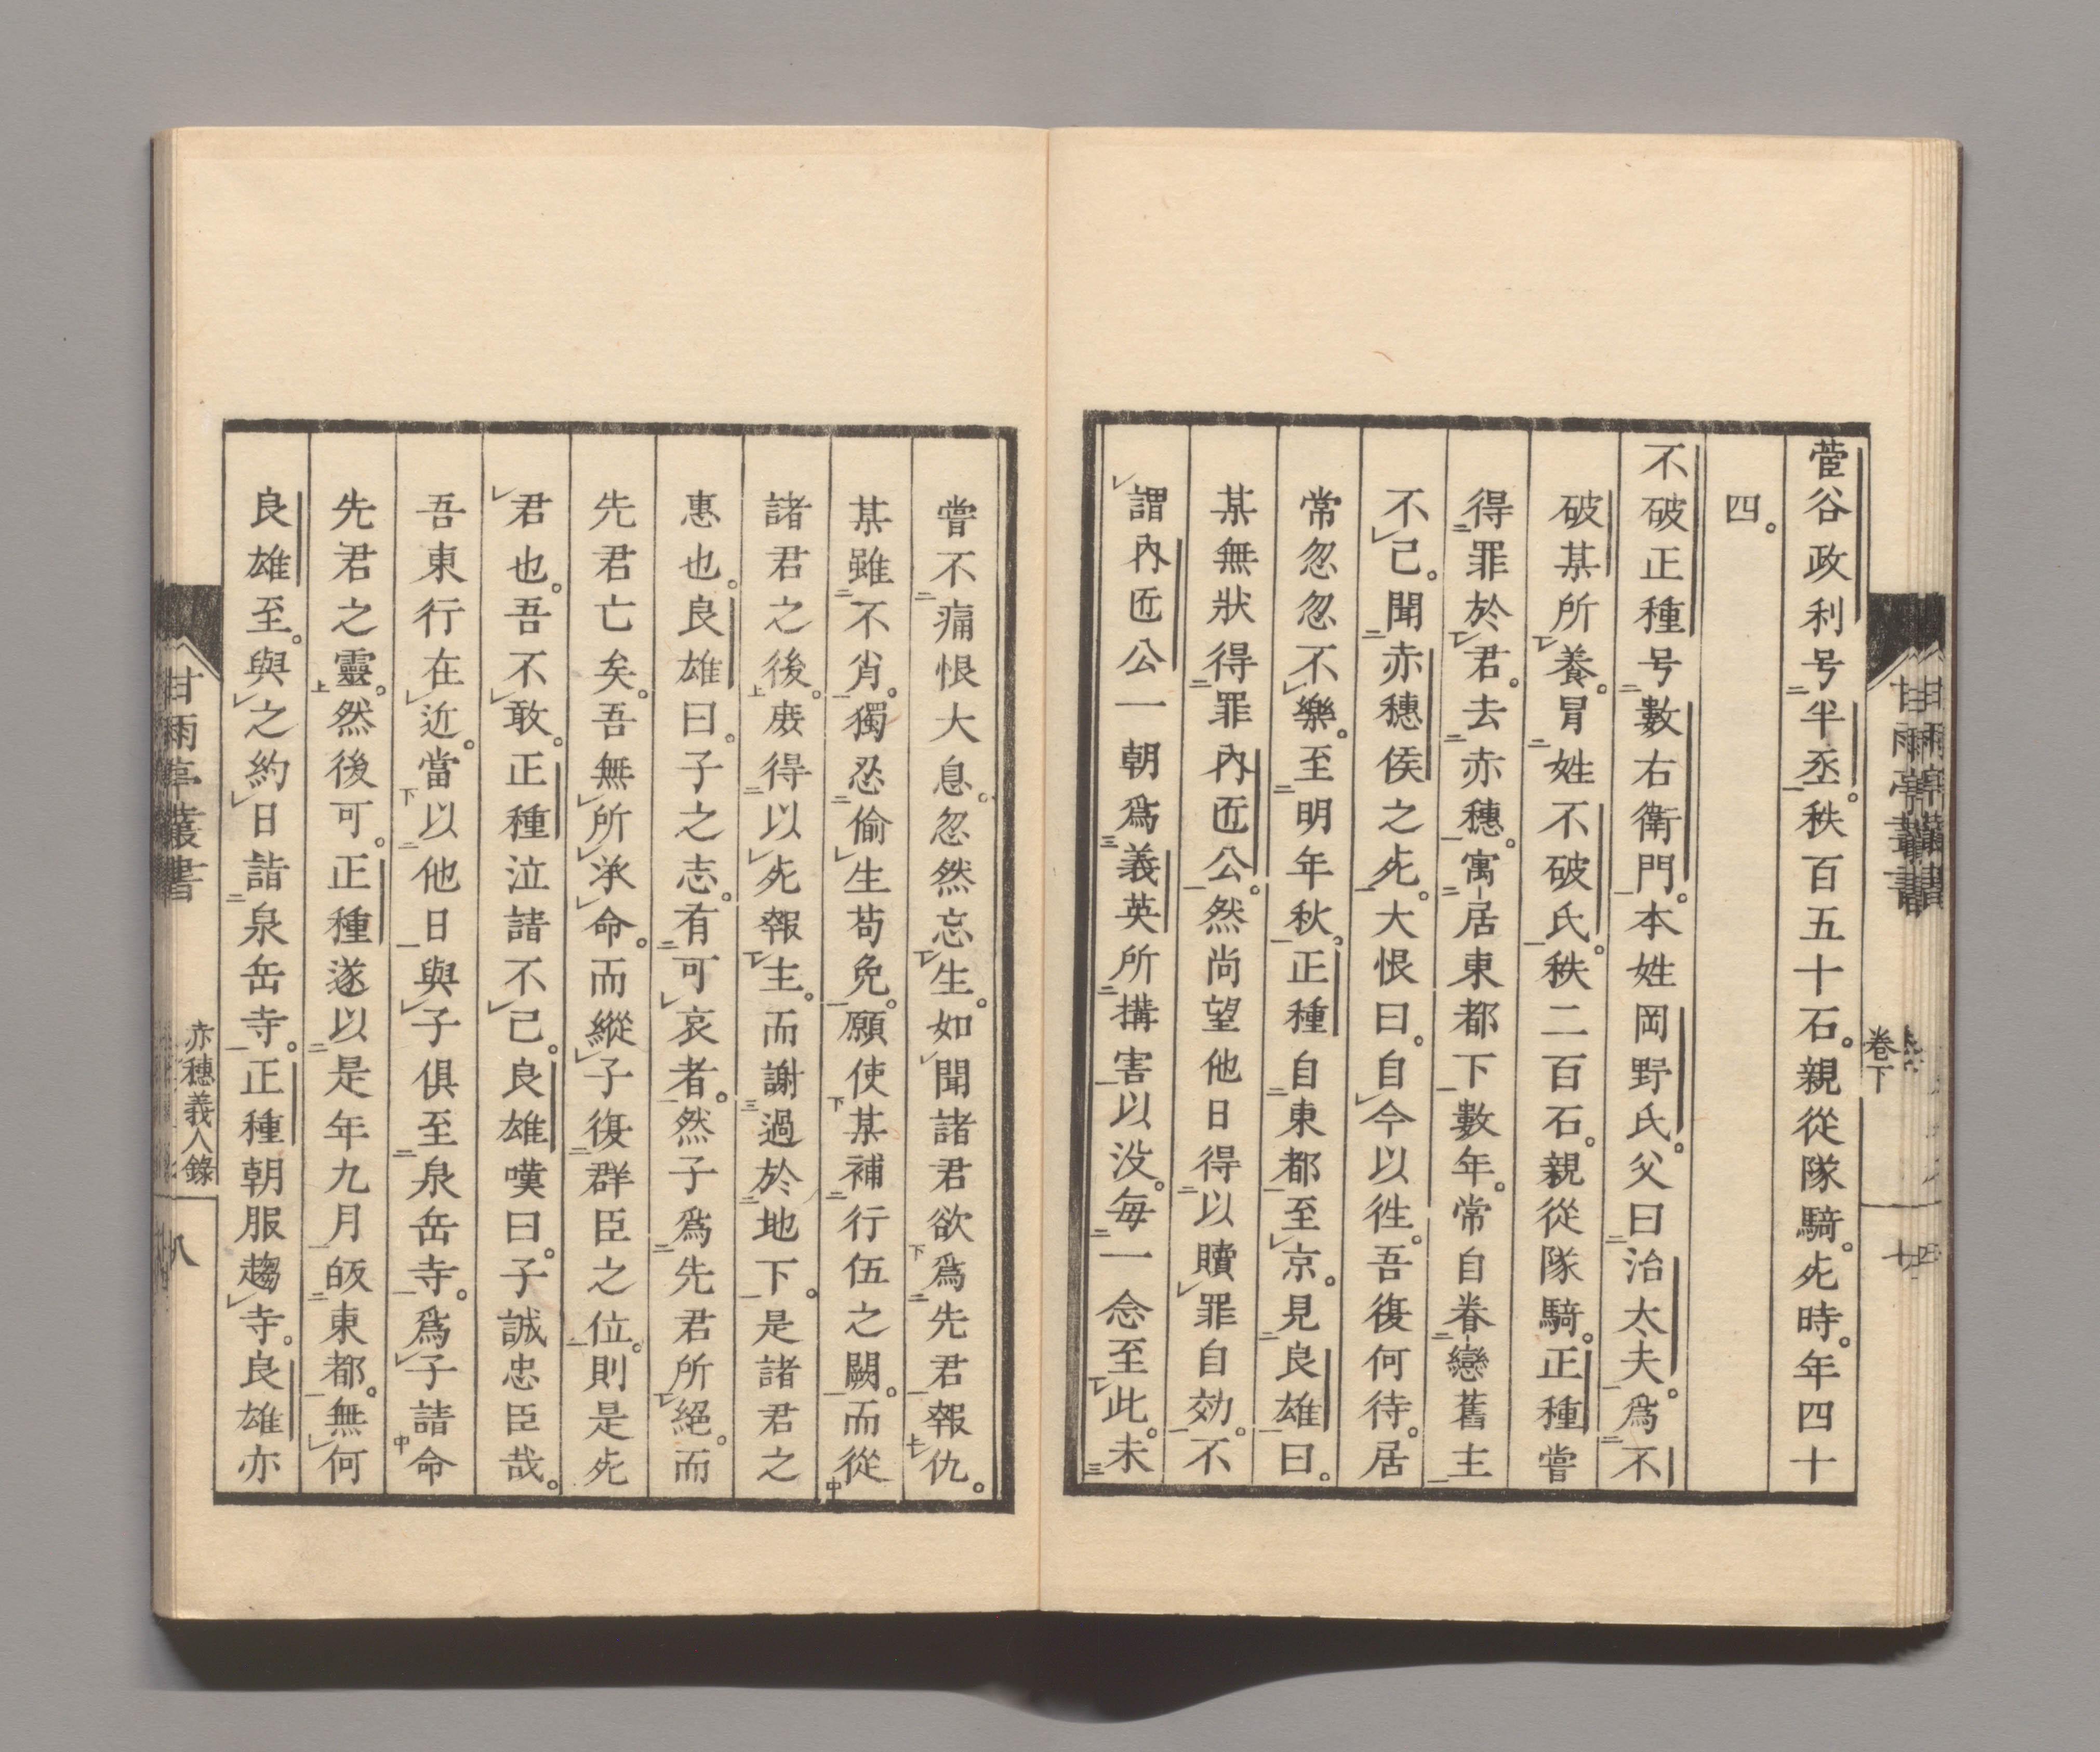 菅谷政利号半丞。秩百五十石。親從隊騎。死時。年四十
四。
不破正種号數右衛門。本姓岡野氏。父曰治太夫。爲不
破某所養。冐姓不破氏。秩二百石。親從隊騎。正種嘗
得罪於君。去赤穗。寓居東都下數年。常自眷戀舊主
不已。聞赤穗侯之死。大恨曰。自今以徃。吾復何待。居
常忽忽不樂。至明年秋。正種自東都至京。見良雄曰。
某無狀得罪內匠公。然尚望他日得以贖罪自効。不
謂內匠公一朝爲義英所搆害以没。每一念至此。未
嘗不痛恨大息。忽然忘生。如聞諸君欲爲先君報仇。
某雖不肖。獨忍偷生苟免。願使某補行伍之闕。而從
諸君之後。庻得以死報主。而謝過於地下。是諸君之
惠也。良雄曰。子之志。有可哀者。然子爲先君所絕。而
先君亡矣。吾無所承命。而縱子復群臣之位。則是死
君也。吾不敢。正種泣請不已。良雄嘆曰。子誠忠臣哉。
吾東行在近。當以他日與子俱至泉岳寺。爲子請命
先君之靈。然後可。正種遂以是年九月皈東都。無何
良雄至。與之約日詣泉岳寺。正種朝服趨寺。良雄亦
甘雨亭叢書
赤穗義人錄
八
卷下